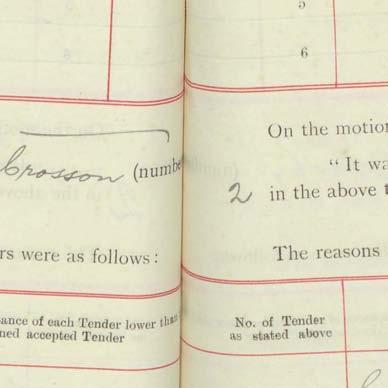 5
6
Crosson (numbe
rs were as follows:
ance of each Tender lower than
ned accepted Tender
On the motion
"It wa
2 in the above t
The reasons
No. of Tender
as stated above